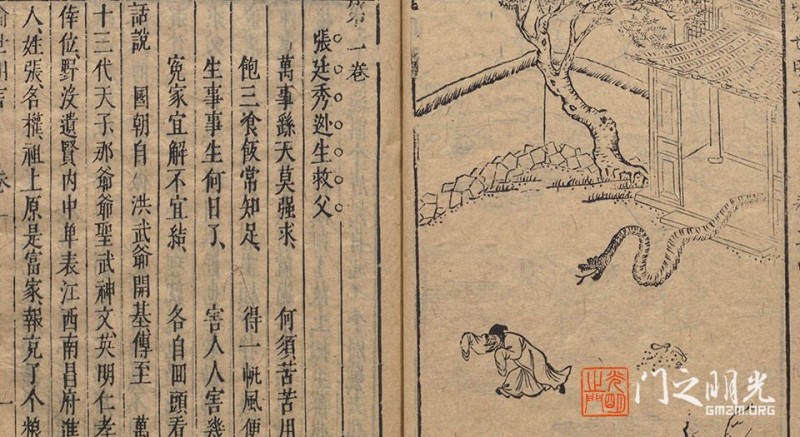 第一卷
張廷秀迯生救父
萬事繇天莫强求、 何須苦苦用
飽三飡飯常知足、 得一帆風便
生事事生何日了、 害人人害幾
寃家宜解不宜結、 各自回頭看
話說 國朝自 洪武爺開基傳至 萬
十三代天子那爺爺聖武神文英明仁孝
倖位野没遺賢內中單表江西南昌府進
人、姓張、名權、祖上原是富家、報充了个粮
喻世明言 卷一 一
光明之門
门之明光
GMZM.ORG